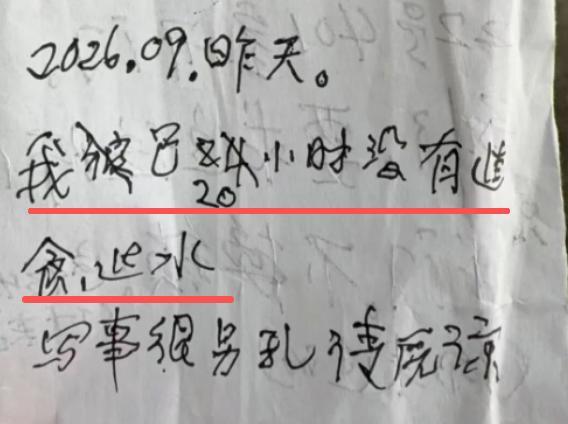 2026.09.昨天。
我已20小时没有进
食进水
写事很另乱请原谅